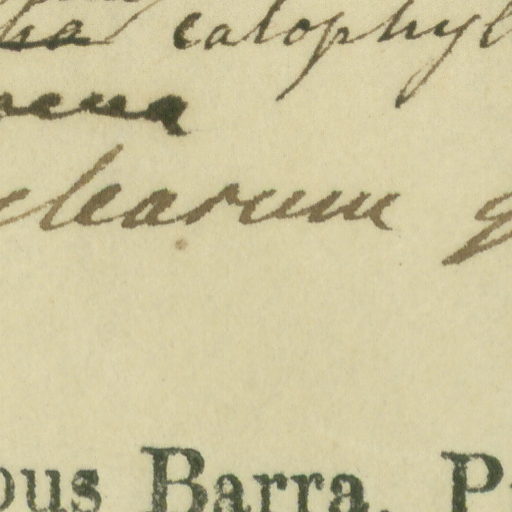 ha calophyl
acua
clearum g
ous Barra, P